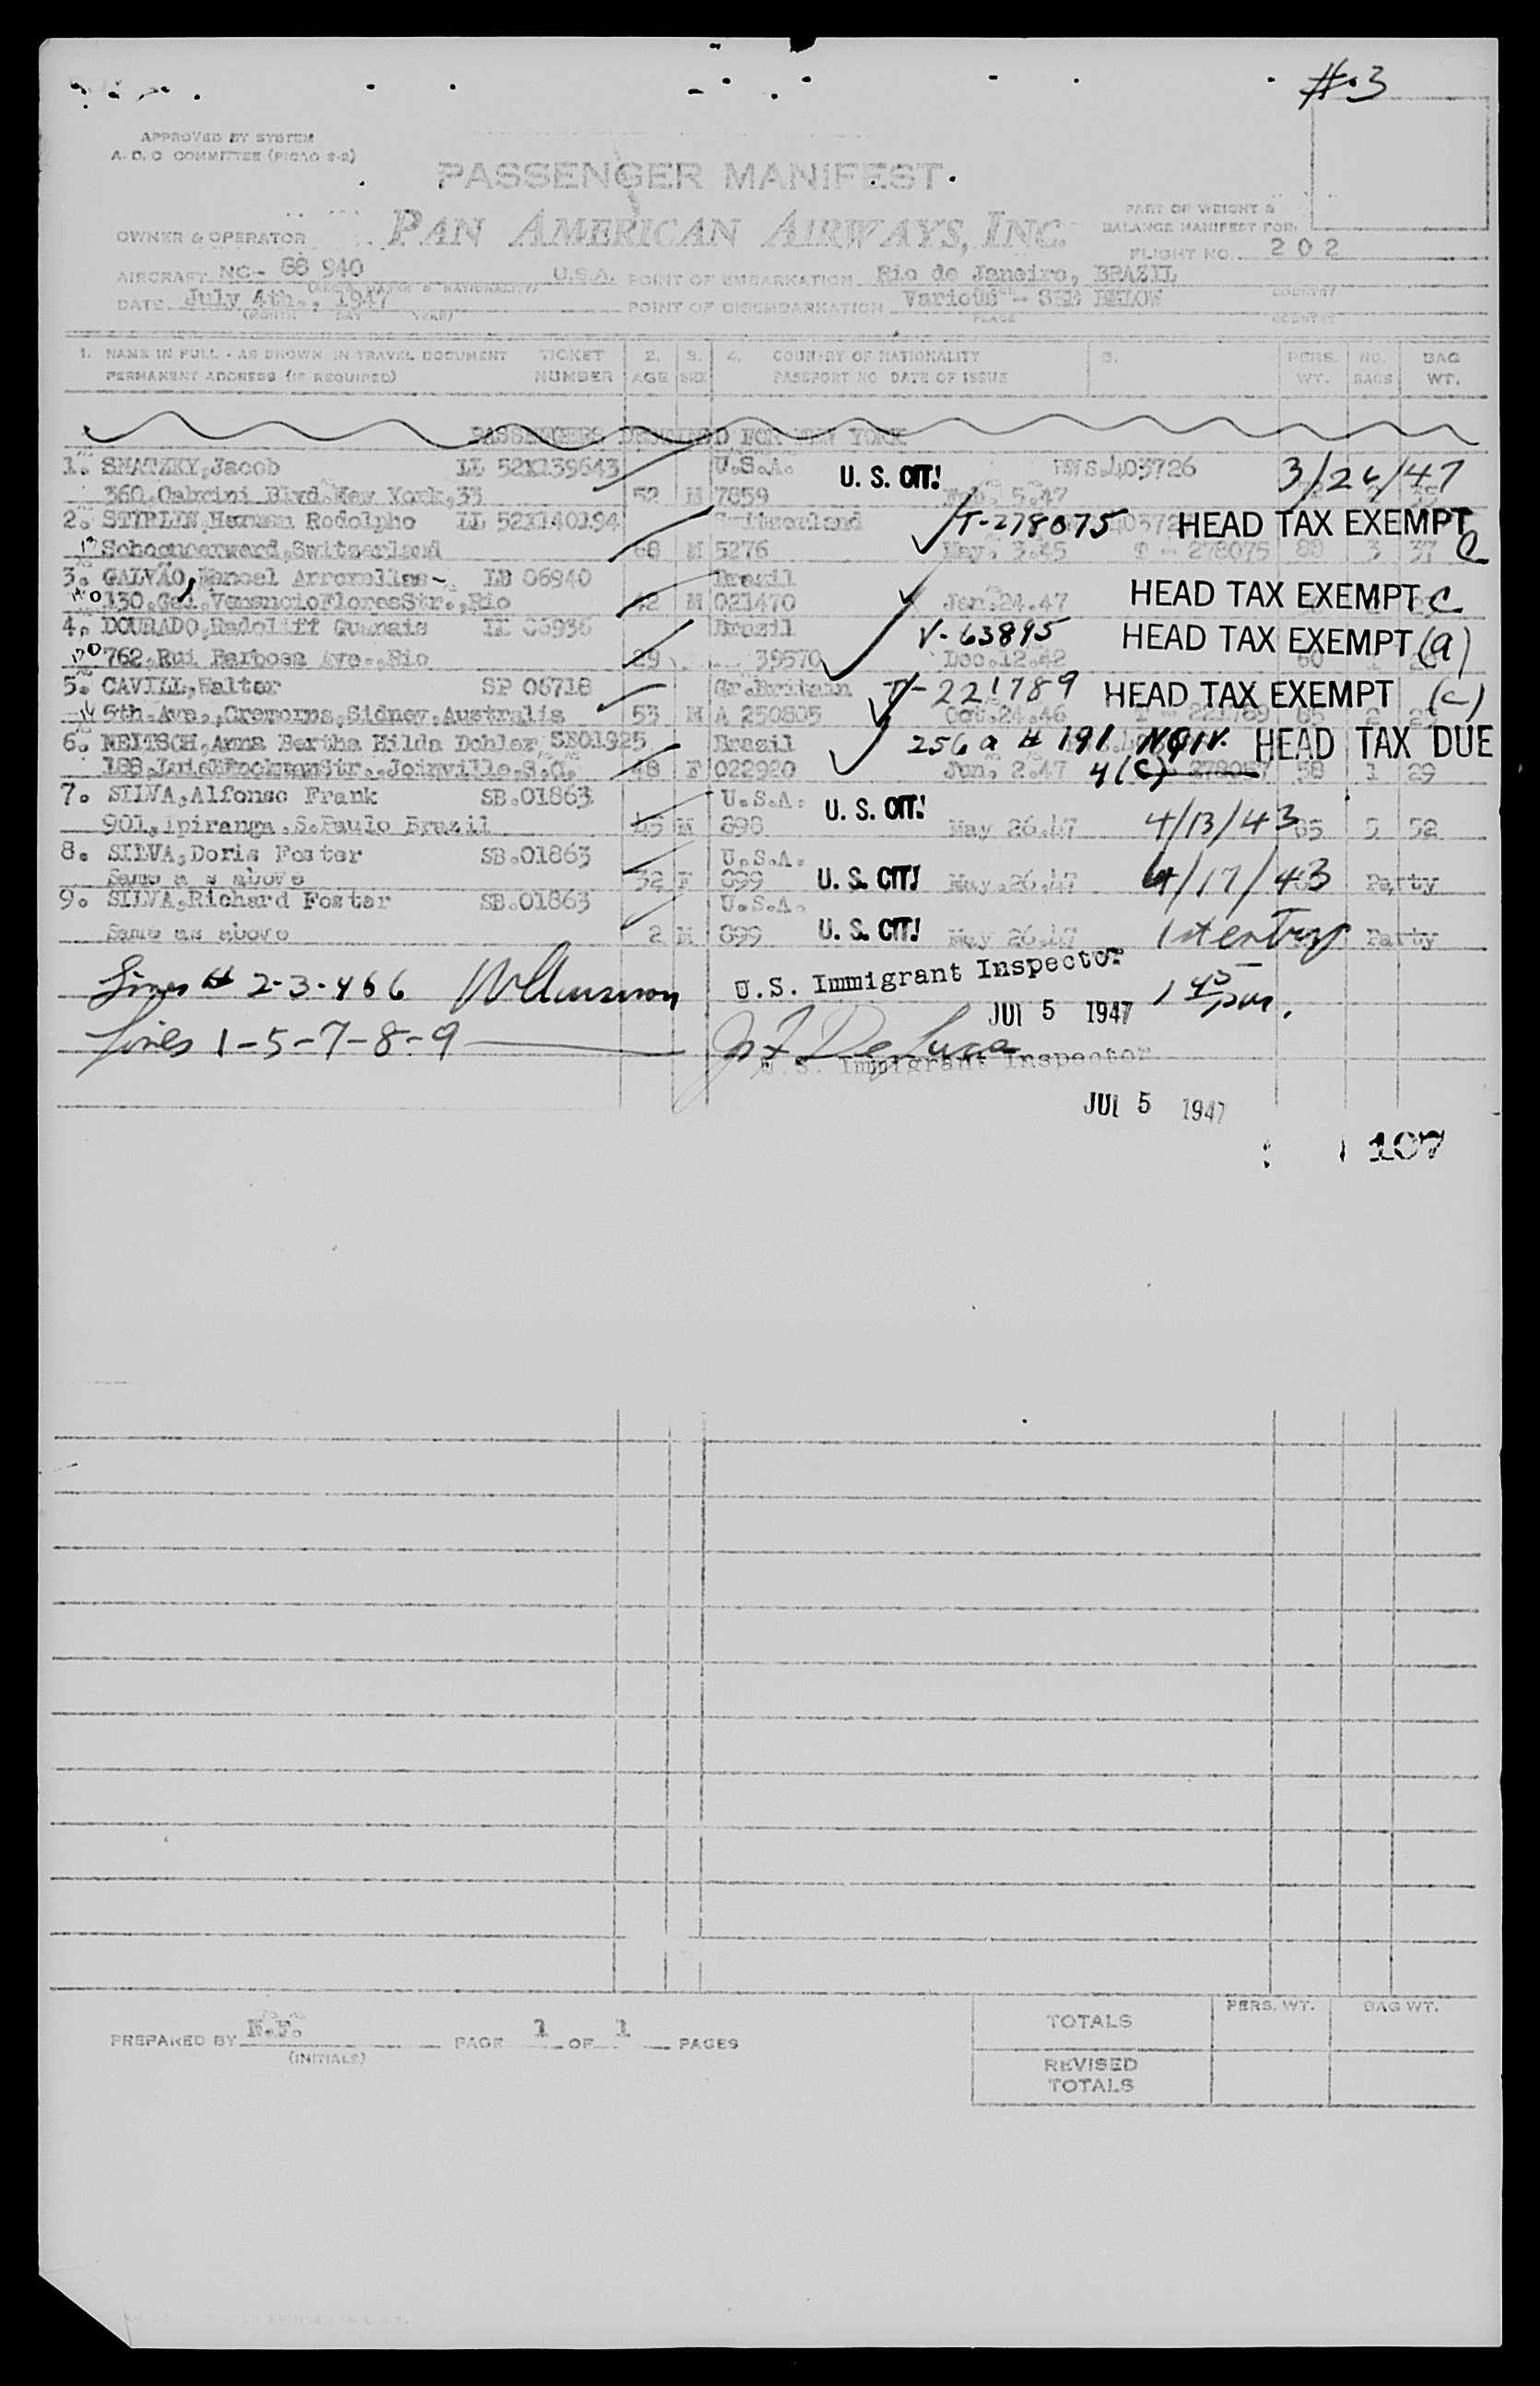 #3
APPROVED BY SYSTEM
A.D.C COMMITTEE (PICAO 2-2)
PASSENGER MANIFEST
PAN AMERICAN AIRWAYS, INC.
PART OF WEIGHT &
BALANCE MANIFEST FOR:
OWNER & OPERATOR
FLIGHT NO. 202
AIRCRAFT NC- 88 940 U.S.A. POINT OF EMBARKATION Rio de Janeiro, BRAZIL
DATE July 4th., 1947 POINT OF DISEMBARKATION Various - SEE BELOW
(MONTH DAY YEAR) PLACE COUNTRY
1. NAME IN FULL - AS SHOWN IN TRAVEL DOCUMENT TICKET 2. 3. 4. COUNTRY OF NATIONALITY 5. PERS. NO. BAG
PERMANENT ADDRESS (IF REQUIRED) NUMBER AGE SEX PASSPORT NO DATE OF ISSUE WT. BAGS WT.
PASSENGERS DESTINED FOR NEW YORK
1. SMATZKY, Jacob LL 52X139643 U.S.A. U. S. CIT! 403726 3/26/47
360, Cabrini Blvd. New York, 33 52 M 7859 5.47
2. STYRLIN, Herman Rodolpho LL 52X140194 Switzerland T-278075 HEAD TAX EXEMPT C
Schoenenwerd, Switzerland 68 M 5276 May. 3.45 T - 278075 80 3 37
3. GALVÃO, Manoel Arroxellas- LD 06940 Brazil
130, Gal. VenancioFloresStr., Rio 42 M 021470 Jan. 24.47 HEAD TAX EXEMPT C
4. DOURADO, Radoliff Guanais 06936 Brazil V-63895 HEAD TAX EXEMPT (a)
762, Rui Barbosa Ave., Rio 29 39570 Dec. 12.42 60 1
5. CAVILL, Walter SP 06718 Gr. Britain T-221789 HEAD TAX EXEMPT (c)
5th. Ave., Cremorne, Sidney, Australia 53 M A 250805 Oct. 24.46 T - 221789 85 2
6. NEITSCH, Anna Bertha Hilda Dohler SB01925 Brazil 256a # 191 HEAD TAX DUE
188, Str., Joinville, S.C. 48 F 022920 Jun. 2.47 4(c) 58 1 29
7. SILVA, Alfonso Frank SB.01863 U.S.A. U. S. CIT!
901, Ipiranga, S. Paulo Brazil 45 M 898 May 26.47 4/13/43 65 5 52
8. SILVA, Doris Foster SB.01863 U.S.A.
Same a s above 32 F 899 U. S. CIT! May. 26.47 4/17/43 Party
9. SILVA, Richard Foster SB.01863 U.S.A.
Same as above 2 M 899 U. S. CIT! May 26.47 1st entry Party
Lines # 2-3-4&6 U.S. Immigrant Inspector
JUL 5 1947 1 45 pm.
Lines 1-5-7-8-9 De Luca
U.S. Immigrant Inspector
JUL 5 1947
107
PREPARED BY F.F. PAGE 1 OF 1 PAGES
(INITIALS)
PERS. WT. BAG WT.
TOTALS
REVISED
TOTALS